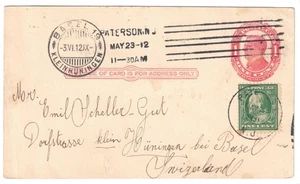 BASEL 19
-3.VI.12.IX-
KLEINHÜNINGEN
PATERSON. N J
MAY 23-12
11-30AM
OF CARD IS FOR ADDRESS ONLY
Mr. Emil Scheller-Gut
Dorfstrasse klein Hüningen bei Basel
Switzerland